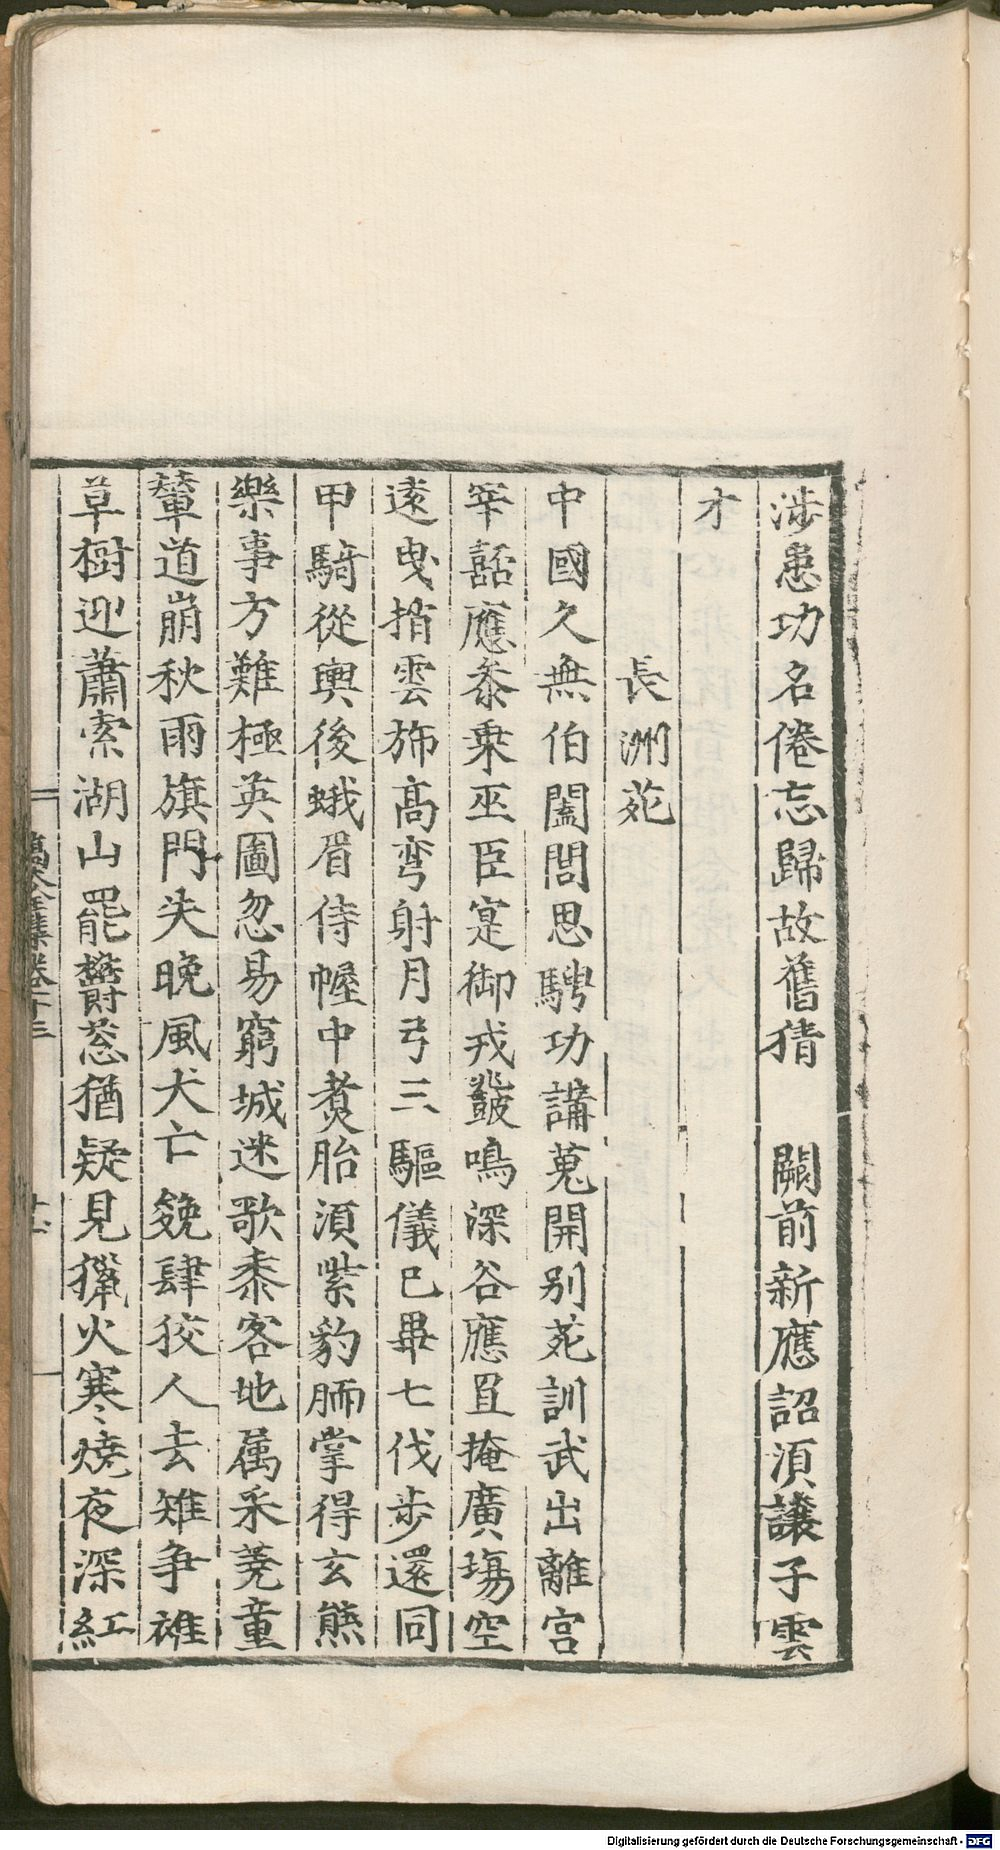 涉患功名倦忘歸故舊猜　闕前新應詔須讓子雲
才
長洲苑
中國久無伯闔閭思騁功講蒐開别苑訓武出離宮
宰嚭應叅乗巫臣寔御戎鼛鳴深谷應罝掩廣塲空
遠曳捎雲斾髙彎射月弓三驅儀已畢七伐步還同
甲騎從輿後蛾眉侍幄中煑胎須紫豹胹掌得玄熊
樂事方難極英圖忽易窮城迷歌黍客地属采蕘童
輦道崩秋雨旗門失晚風犬亡㕙肆狡人去雉争雄
草樹迎蕭索湖山罷欝葱猶疑見獵火寒燒夜深紅
髙太全集卷十三
十七
Digitalisierung gefördert durch die Deutsche Forschungsgemeinschaft - DFG